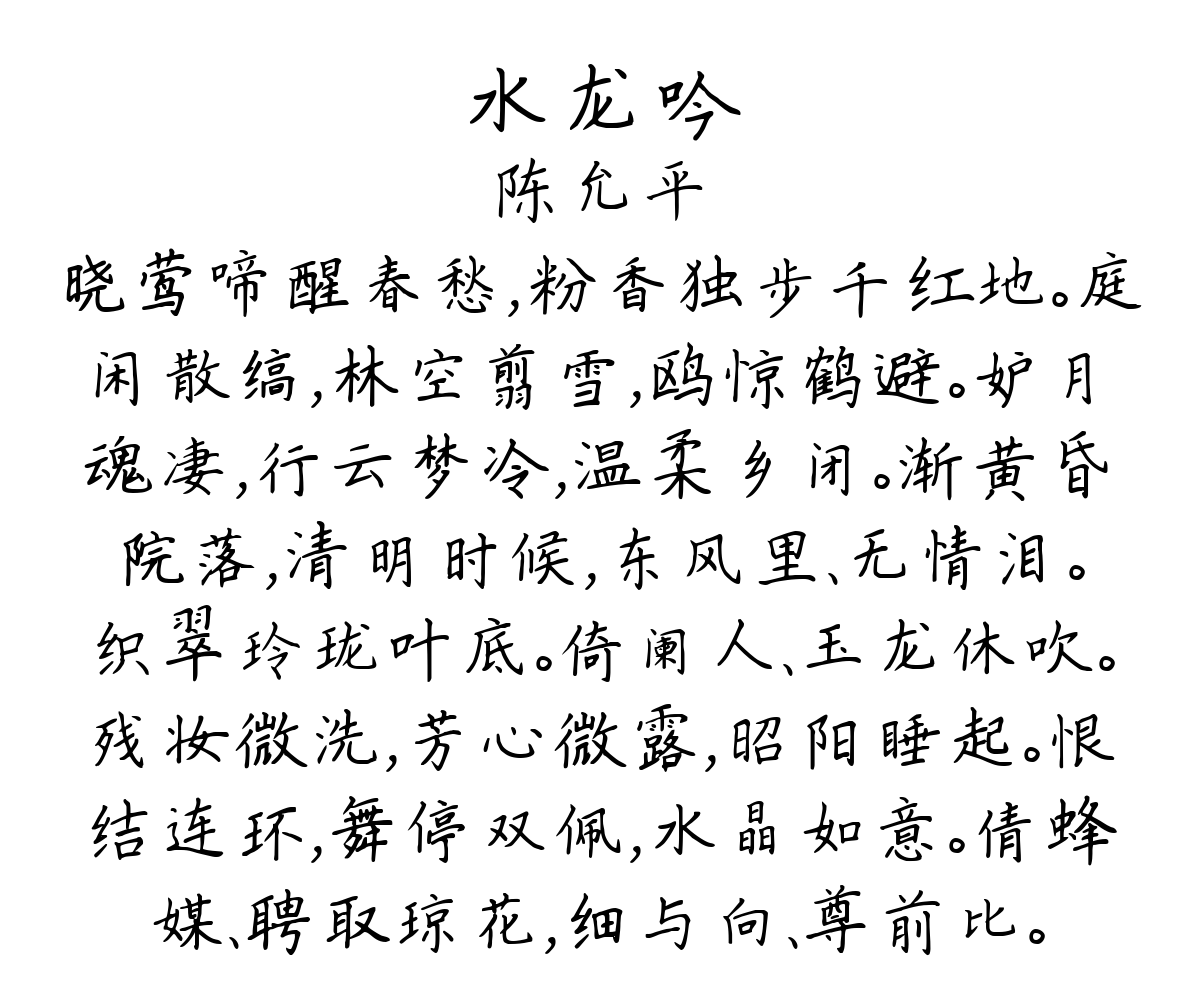 水龙吟
陈允平
晓莺啼醒春愁,粉香独步千红地。庭
闲散缟,林空翦雪,鸥惊鹤避。妒月
魂凄,行云梦冷,温柔乡闭。渐黄昏
院落,清明时候,东风里、无情泪。
织翠玲珑叶底。倚阑人、玉龙休吹。
残妆微洗,芳心微露,昭阳睡起。恨
结连环,舞停双佩,水晶如意。倩蜂
媒、聘取琼花,细与向、尊前比。